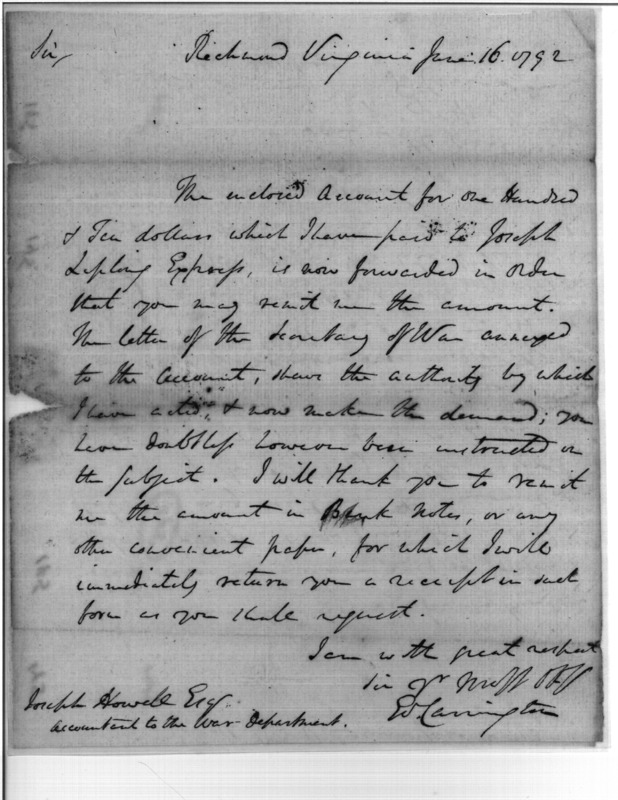 Sir, Richmond Virginia June 16. 1792
The enclosed Account for one Hundred
& Ten dollars which I have paid to Joseph
Express, is now forwarded in order
that you may remit me the amount.
The letter of the Secretary of War annexed
to the Account, shews the authority by which
I have acted, & now make the demand; you
have doubtless however been instructed on
the subject. I will thank you to remit
me the amount in Bank Notes, or any
other convenient paper, for which I will
immediately return you a receipt in such
form as you shall request.
I am with great respect
Sir Yr Most Ob
Ed Carrington
Joseph Howell Esq
Accountant to the War Department.